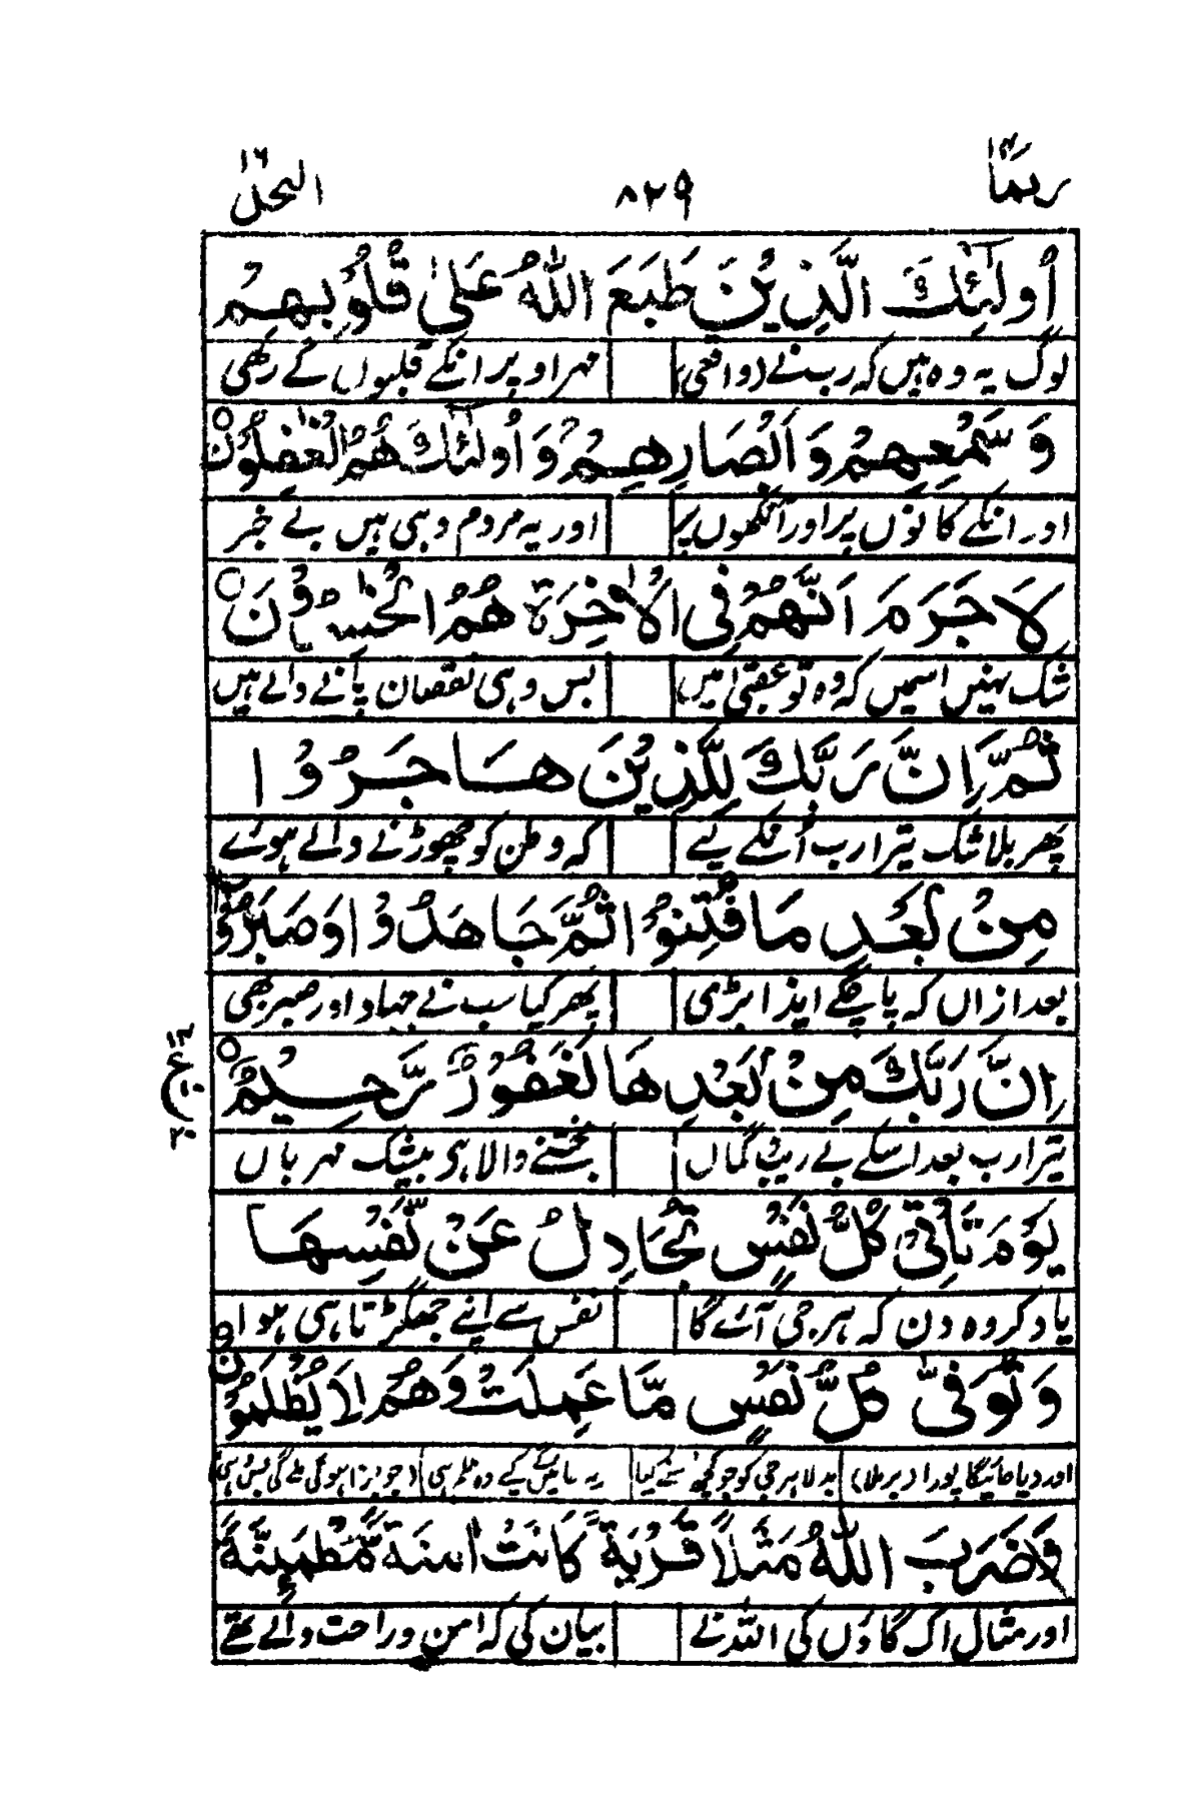 ربما ١٤ ٨٢٩ النحل ١٦
اُولٰٓئِكَ الَّذِيْنَ طَبَعَ اللّٰهُ عَلٰى قُلُوْبِهِمْ
لوگ یہ وہ ہیں کہ رب نے (واقعی) مہر اوپر انکے قلبوں کے رکھی
وَسَمْعِهِمْ وَاَبْصَارِهِمْ وَاُولٰٓئِكَ هُمُ الْغٰفِلُوْنَ
اور انکے کانوں پر اور آنکھوں پر اور یہ مردم وہی ہیں بے خبر
لَا جَرَمَ اَنَّهُمْ فِى الْاٰخِرَةِ هُمُ الْخٰسِرُوْنَ
شک نہیں اسمیں کہ وہ تو عقبیٰ میں بس وہی نقصان پانے والے ہیں
ثُمَّ اِنَّ رَبَّكَ لِلَّذِيْنَ هَاجَرُوْا
پھر بلا شک تیرا رب اُنکے لیے کہ وطن کو چھوڑنے والے ہوئے
مِنْ بَعْدِ مَا فُتِنُوْا ثُمَّ جَاهَدُوْا وَصَبَرُوْٓا
بعد ازاں کہ پا چکے ایذا بڑی پھر کیا سب نے جہاد اور صبر بھی
اِنَّ رَبَّكَ مِنْ بَعْدِهَا لَغَفُوْرٌ رَّحِيْمٌ
ع ٢٠
تیرا رب بعد اسکے بے ریب گماں بخشنے والا ہی بیشک مہرباں
يَوْمَ تَاْتِىْ كُلُّ نَفْسٍ تُجَادِلُ عَنْ نَّفْسِهَا
یاد کر وہ دن کہ ہر جی آئے گا نفس سے اپنے جھگڑتا ہی ہوا
وَتُوَفّٰى كُلُّ نَفْسٍ مَّا عَمِلَتْ وَهُمْ لَا يُظْلَمُوْنَ
اور دیا جائیگا پورا (برملا) بدلا ہر جی کو جو کچھ اسنے کیا
وَضَرَبَ اللّٰهُ مَثَلًا قَرْيَةً كَانَتْ اٰمِنَةً مُّطْمَئِنَّةً
اور مثال اک گاؤں کی اللہ نے بیان کی کہ امن و راحت والے تھے